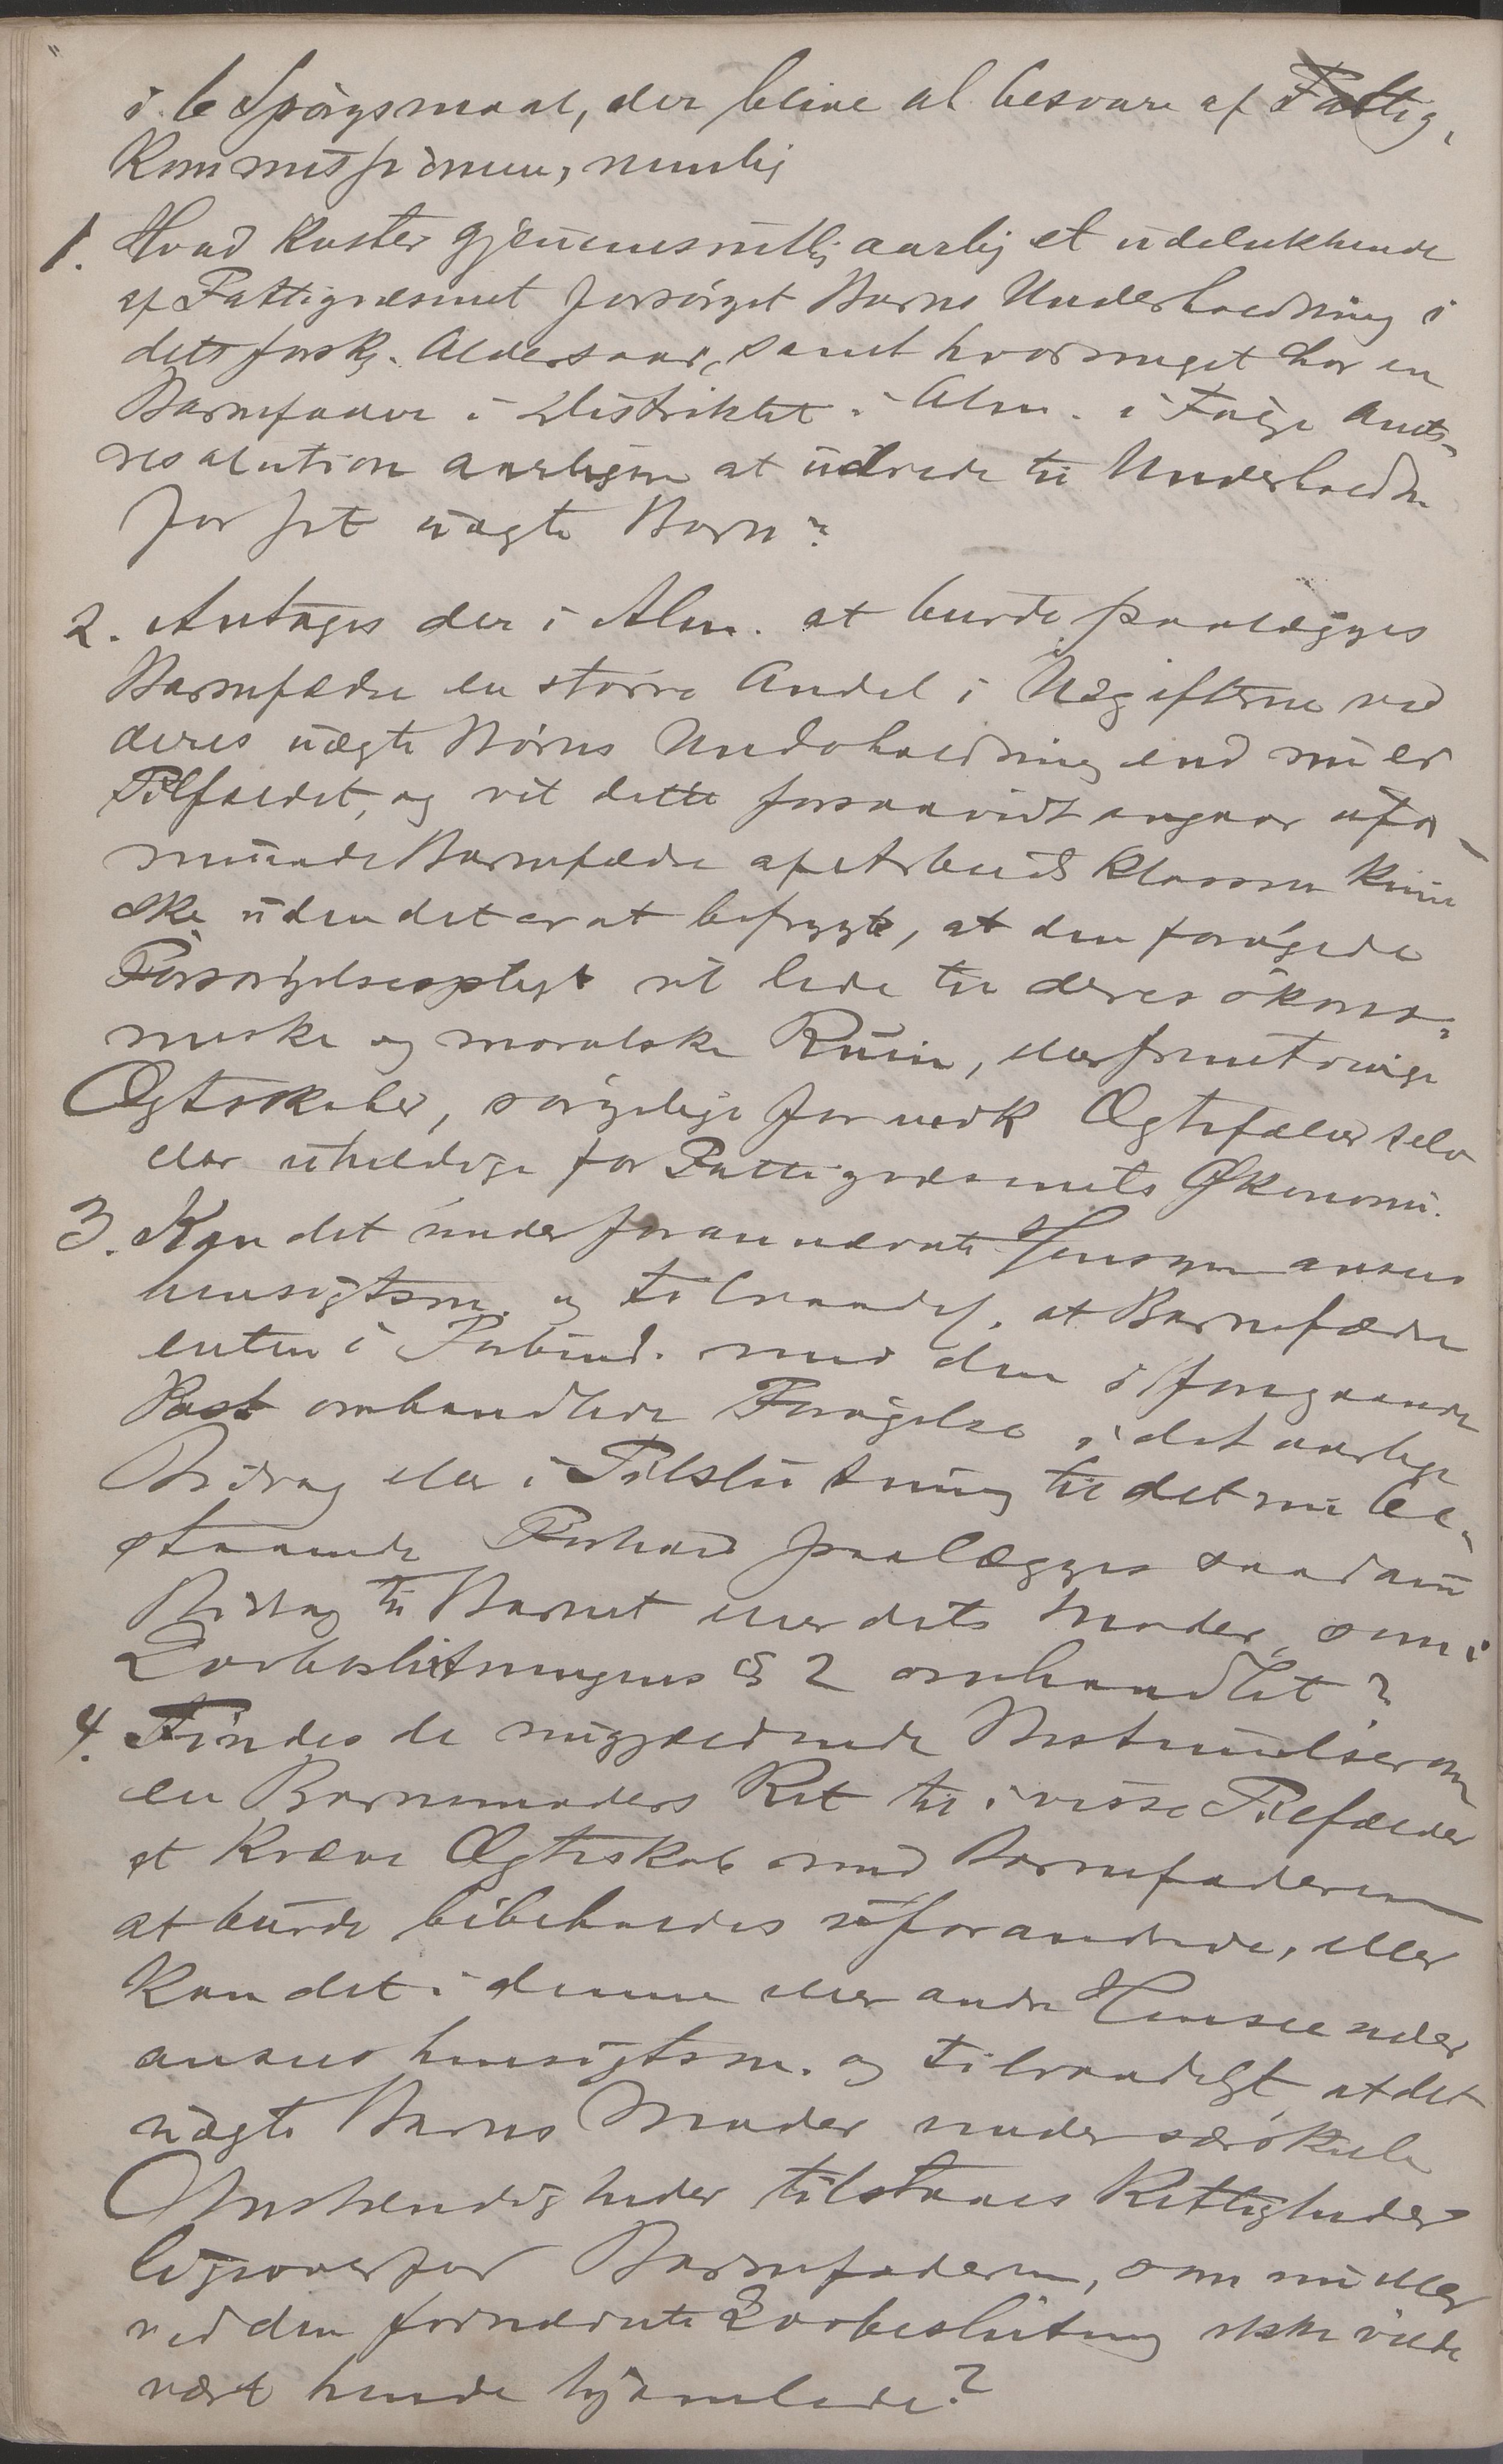 i 6 Spörgsmaal, der blive at besvare af Fattig,
Kommissionen, nemlig
1. Hvad koster gjennemsnitlig aarlig et udelukkende
af Fattigvæsenet forsörget Barns Underholdning i
dets forskj. Aldersaar, samt hvormeget har en
Barnefader i Distriktet i Alm. i Fölge Amts-
resolution aarligen at udrede til Underholdn
for sit uægte Barn?
2. Antages der i Alm. at burde paalægges
Barnefædre en större Andel i Udgifterne ved
deres uægte Börns Underholdning end nu er
Tilfældet, og vil dette forsaavidt angaar ufor-
muende Barnefædre af Arbeidsklassen kunne
ske uden det er at befrygte, at den forögede
Forsörgelsespligt vil lede til deres ökono-
miske og moralske Ruin, eller fremtvinge
Ægteskaber, sörgelige for vedk Ægtefæller selv
eller uheldige for Fattigvæsenets Økonomi.
3. Kan det under forannævnte Hensyn ansees
hensigtsm. og tilraadel. at Barnefædre
enten i Forbind. med den i foregaaende
Post omhandlede Forögelse i det aarlige
Bidrag eller i Tilslutning til det nu be-
staaende Forhold paalægges saadant
Bidrag til Barnet eller dets Moder, som i
Lovbeslutningens § 2 omhandlet?
4. Findes de nugjældende Bestemmelser om
en Barnemoders Ret til i visse Tilfælder
at kræve Ægteskab med Barnefaderen
at burde bibeholdes uforandrede, eller
kan det i denne eller andre Henseender
ansees hensigtsm. og tilraadeligt, at det
uægte Barns Moder under særskilte
Omstændigheder tilstaaes Rettigheder
ligeoverfor Barnefaderen, som nu eller
ved den fornævnte Lovbeslutning ikke vilde
være hende hjemlede?